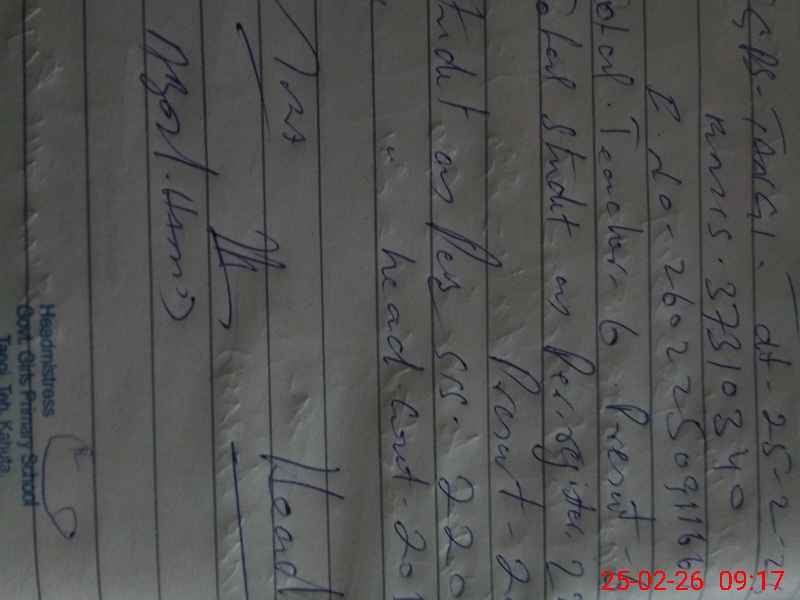 GPS- TANGI. dt- 25-2-2
EMIS. 37310340
I.D- 260225091166
otal. Teacher- 6. Present -
otal Studet as Per register. 2
Present - 2
tudet as Per SIS- 220
" head Count- 201
Ins Head
Headmistress
Govt. Girls Primary School
Tangi, Teh, Kahuta
25-02-26 09:17